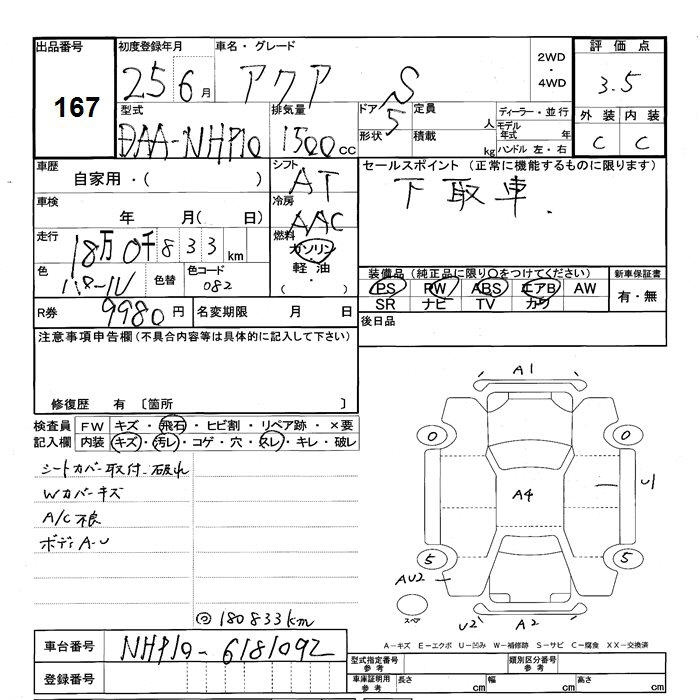 出品番号 初度登録年月 車名・グレード 評価点
167 25 6月 アクア S 2WD・4WD 3.5
型式 排気量 ドア 定員 ディーラー・並行 外装 内装
DAA-NHP10 1500cc 5 人 モデル年式 年 C C
形状 積載 kg ハンドル 左・右
車歴 シフト セールスポイント（正常に機能するものに限ります）
自家用・( ) AT 下取車.
車検 冷房
年 月( 日) AAC
走行 燃料
18万0千833km ガソリン
色 色替 色コード 軽油 装備品（純正品に限り○をつけてください） 新車保証書
パール 082 (・) PS PW ABS エアB AW 有・無
SR ナビ TV カワ
R券 9980円 名変期限 月 日 後日品
注意事項申告欄（不具合内容等は具体的に記入して下さい）
修復歴 有 〔箇所 〕
A1
検査員 FW キズ・飛石・ヒビ割・リペア跡・×要
記入欄 内装 キズ・汚レ・コゲ・穴・スレ・キレ・破レ
0 0
シートカバー取付 破れ
Wカバーキズ
A4 U1
A/C不良
ボディA-U
5 5
AU2
スペア
◎180833km
U2 A2
車台番号 NHP10-6181092
A-キズ E-エクボ U-凹み W-補修跡 S-サビ C-腐食 XX-交換済
登録番号 型式指定番号 参考 類別区分番号 参考
車庫証明用 参考 長さ cm 幅 cm 高さ cm